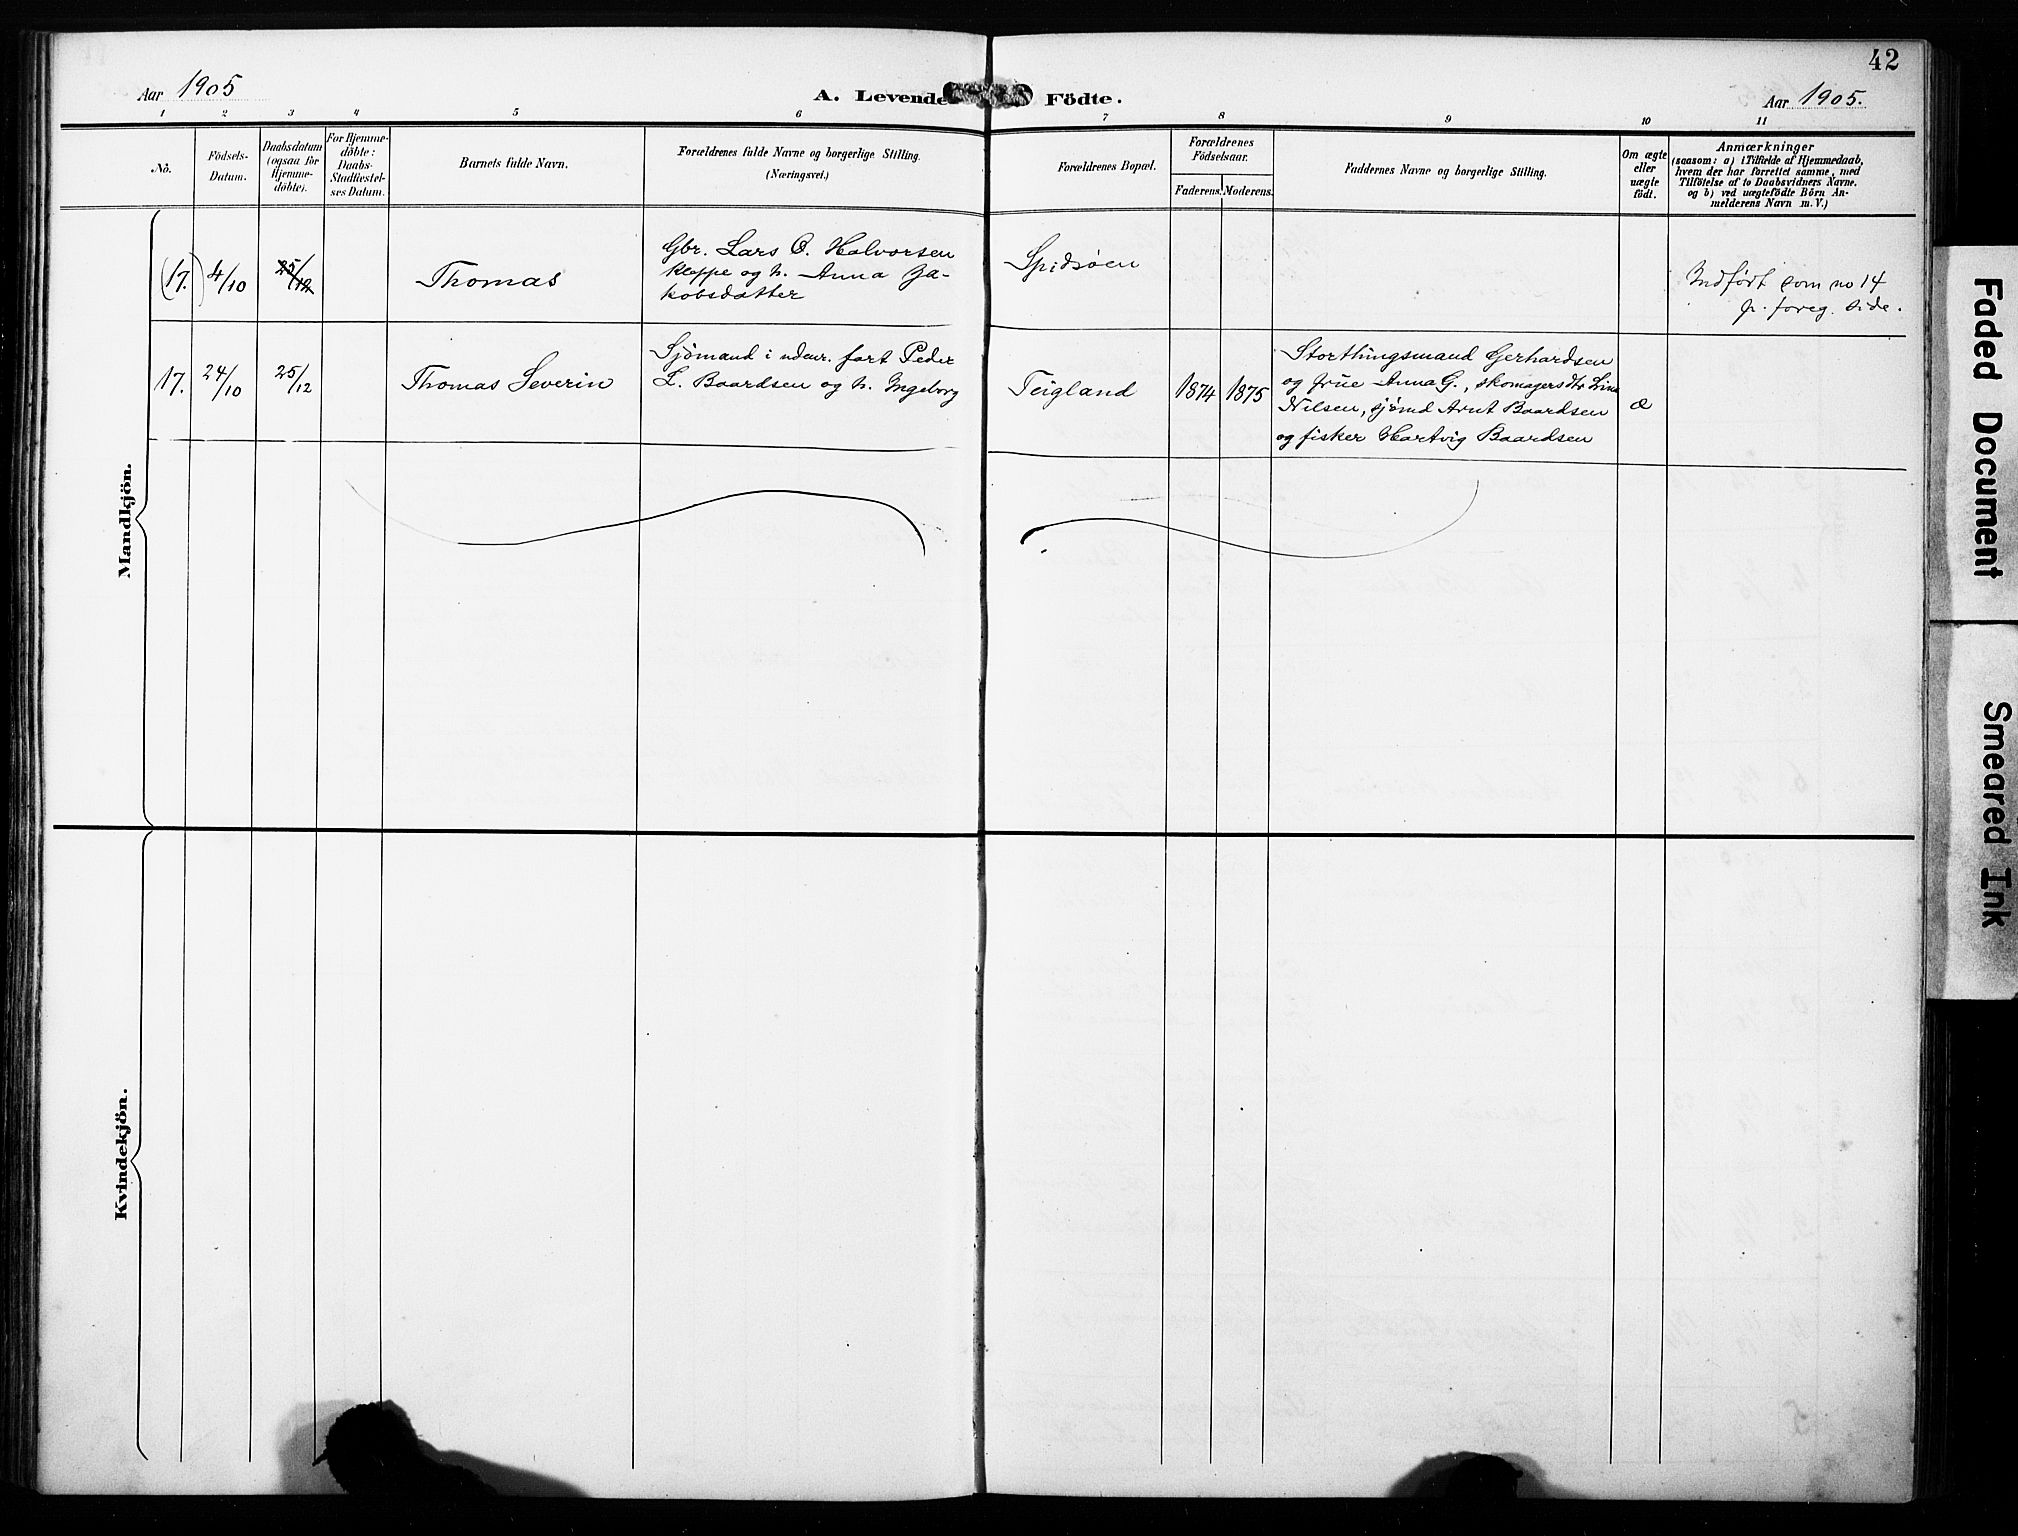 42
Aar 1905
A. Levende Födte.
Aar 1905.
1 2 3 4 5 6 7 8 9 10 11
No.
Födsels-
Datum.
Daabsdatum
(ogsaa for
Hjemme-
döbte).
For Hjemme-
döbte:
Daabs-
Stadfæstel-
ses Datum.
Barnets fulde Navn.
Forældrenes fulde Navne og borgerlige Stilling.
(Næringsvei.)
Forældrenes Bopæl.
Forældrenes
Födselsaar.
Faderens.
Moderens.
Faddernes Navne og borgerlige Stilling.
Om ægte
eller
uægte
födt.
Anmærkninger
(saasom: a) i Tilfælde af Hjemmedaab,
hvem der har forrettet samme, med
Tilföielse af to Daabsvidners Navne.
og b) ved uægtefödte Börn An-
melderens Navn m. V.)
Mandkjön.
(17.) 4/10 25/12
Thomas
Gbr. Lars O. Halvorsen
Kloppe og h. Anna Ja-
kobsdatter
Spidsöen
Indfört som no 14
p. foreg. side.
17. 24/10 25/12
Thomas Severin
Sjömand i udenr. fart Peder
L. Baardsen og h. Ingeborg
Teigland
1874
1875
Storthingsmand Gerhardsen
og frue Anna G., skomagersdtr Lina
Nilsen, sjömd Arnt Baardsen
og fisker Hartvig Baardsen
æ
Kvindekjön.
Faded Document
Smeared Ink